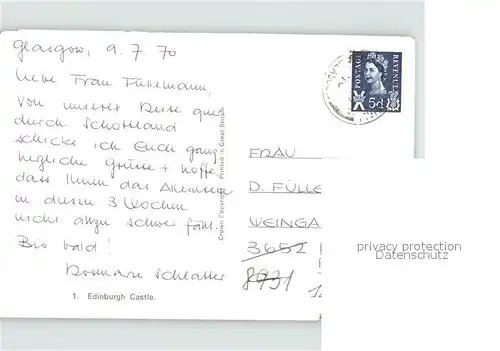 Glasgow, 9. 7. 70
Liebe Frau Füllemann,
von unserer Reise quer
durch Schottland
schicke ich Euch ganz
herzliche Grüsse + hoffe
dass Ihnen das Alleinsein
in diesen 3 Wochen
nicht allzu schwer fällt.
Bis bald!
Rosmarie Schlatter
1. Edinburgh Castle.
Crown Copyright Printed in Great Britain
POSTAGE REVENUE
5d
FRAU
D. FÜLLE
WEINGA
3652
8931
privacy protection
Datenschutz